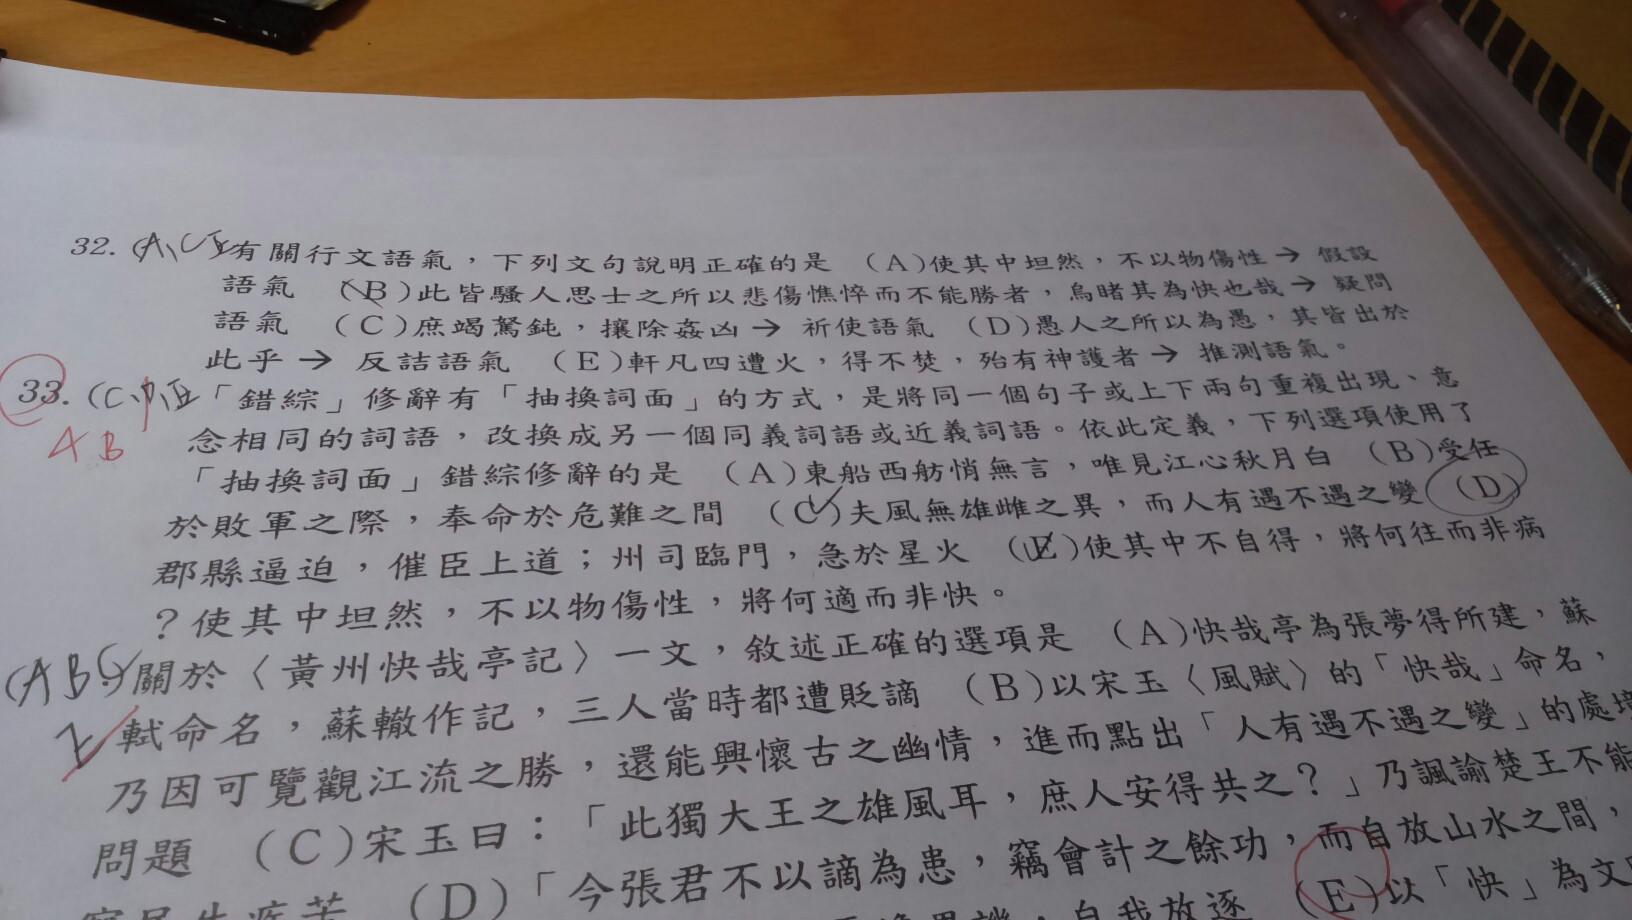 32. (A、C、E 有關行文語氣，下列文句說明正確的是 (A)使其中坦然，不以物傷性→ 假設
語氣 (B)此皆騷人思士之所以悲傷憔悴而不能勝者，烏睹其為快也哉→ 疑問
語氣 (C)庶竭駑鈍，攘除姦凶→ 祈使語氣 (D)愚人之所以為愚，其皆出於
此乎→ 反詰語氣 (E)軒凡四遭火，得不焚，殆有神護者→ 推測語氣。
33. (C、D、E 「錯綜」修辭有「抽換詞面」的方式，是將同一個句子或上下兩句重複出現、意
A B
念相同的詞語，改換成另一個同義詞語或近義詞語。依此定義，下列選項使用了
「抽換詞面」錯綜修辭的是 (A)東船西舫悄無言，唯見江心秋月白 (B)受任
於敗軍之際，奉命於危難之間 (C)夫風無雄雌之異，而人有遇不遇之變 (D)
郡縣逼迫，催臣上道；州司臨門，急於星火 (E)使其中不自得，將何往而非病
？使其中坦然，不以物傷性，將何適而非快。
(A B C) 關於〈黃州快哉亭記〉一文，敘述正確的選項是 (A)快哉亭為張夢得所建，蘇
軾命名，蘇轍作記，三人當時都遭貶謫 (B)以宋玉〈風賦〉的「快哉」命名，
乃因可覽觀江流之勝，還能興懷古之幽情，進而點出「人有遇不遇之變」的處境
問題 (C)宋玉曰：「此獨大王之雄風耳，庶人安得共之？」乃諷諭楚王不能
(D)「今張君不以謫為患，竊會計之餘功，而自放山水之間，
自我放逐 (E)以「快」為文